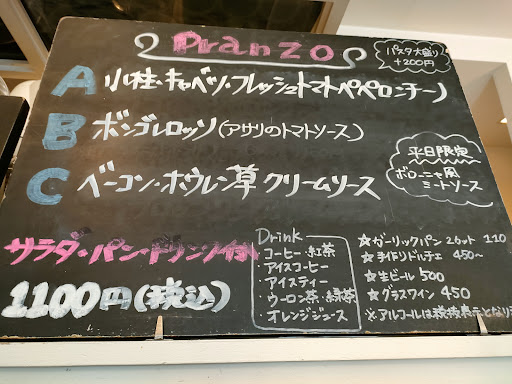 Pranzo
パスタ大盛り
+200円
A 小柱・キャベツ・フレッシュトマトペペロンチーノ
B ボンゴレロッソ(アサリのトマトソース)
C ベーコン・ホウレン草 クリームソース
平日限定
ボローニャ風
ミートソース
サラダ・パン・ドリンク付
1100円(税込)
Drink
コーヒー・紅茶
・アイスコーヒー
・アイスティー
・ウーロン茶・緑茶
・オレンジジュース
☆ガーリックパン 2カット 110
☆手作りドルチェ 450~
☆生ビール 500
☆グラスワイン 450
※アルコールは税抜表示となり